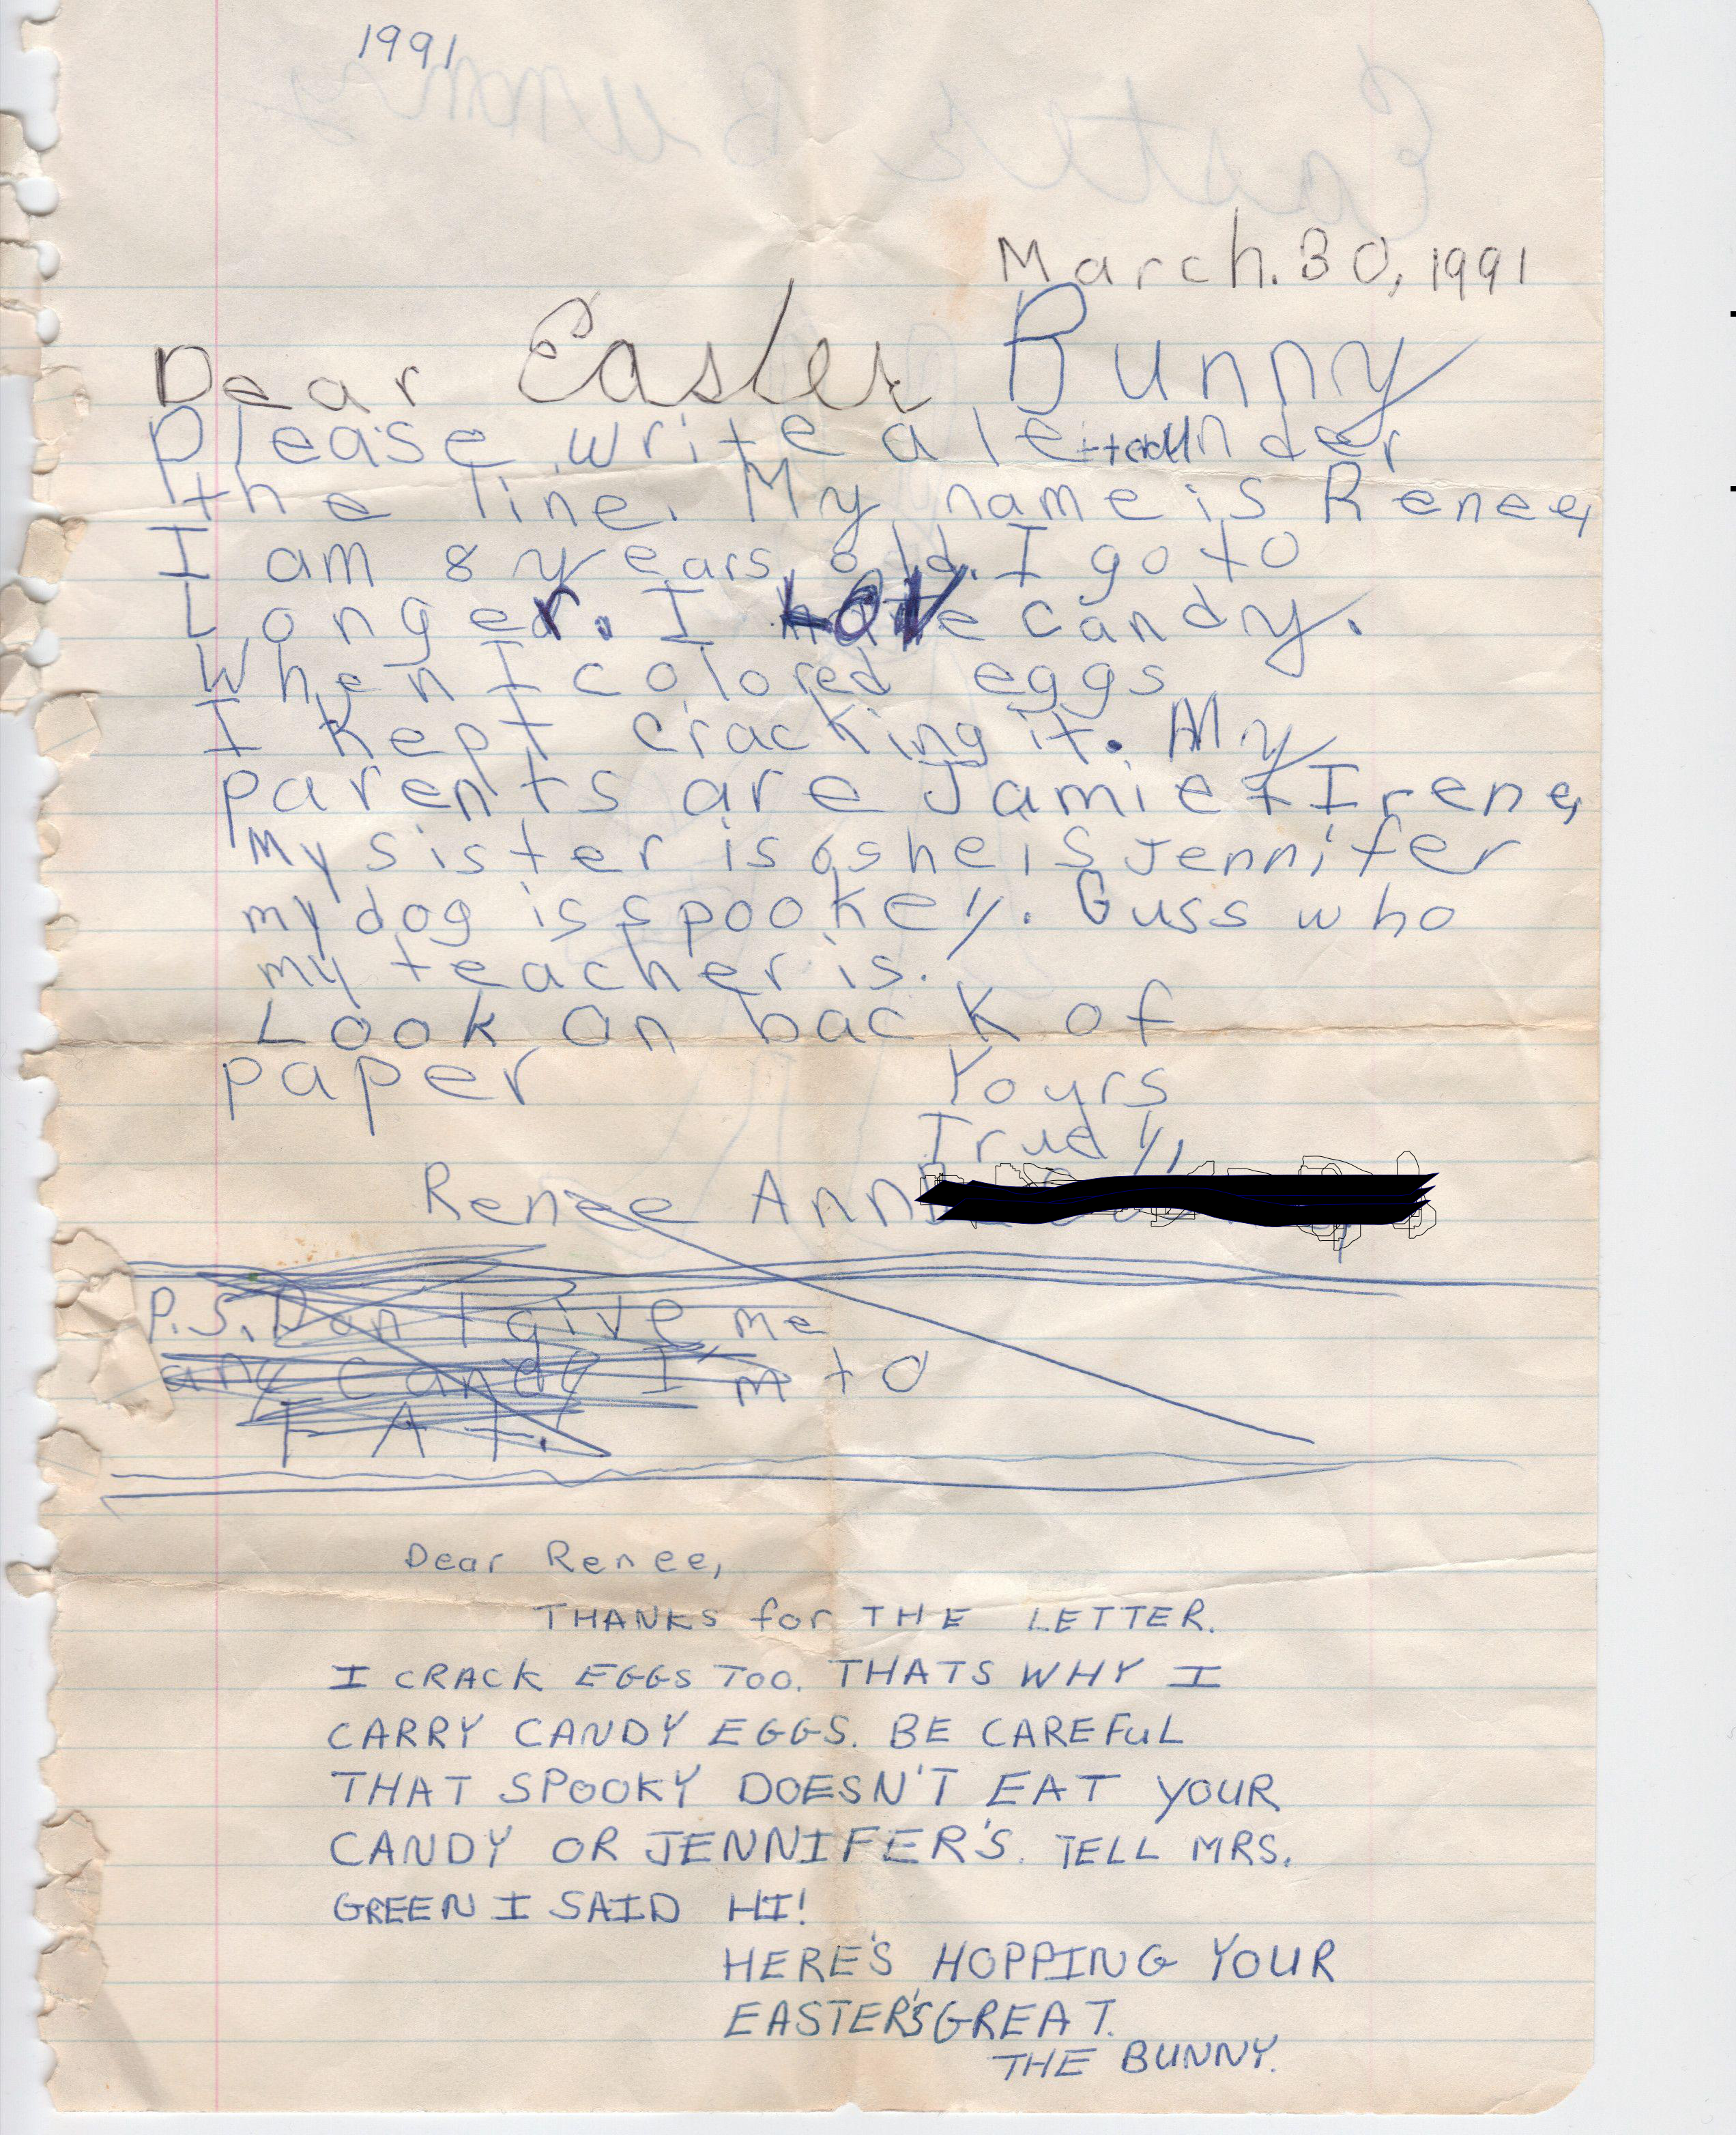 1991
Easter Bunny
March. 30, 1991
Dear Easter Bunny
Please write a letter under
the line. My name is Renee,
I am 8 years old. I go to
Longer. I Love candy.
When I colored eggs
I kept cracking it. My
parents are Jamie + Irene,
My sister is 6 she is Jennifer
my dog is spookey. Guss who
my teacher is.
Look on back of
paper
Yours
Truely,
Renee Ann
P.S. Don't give me
any candy I'm to
FAT.
Dear Renee,
THANKS for THE LETTER.
I CRACK EGGS TOO. THATS WHY I
CARRY CANDY EGGS. BE CAREFUL
THAT SPOOKY DOESN'T EAT YOUR
CANDY OR JENNIFER'S. TELL MRS.
GREEN I SAID HI!
HERE'S HOPPING YOUR
EASTER'S GREAT.
THE BUNNY.